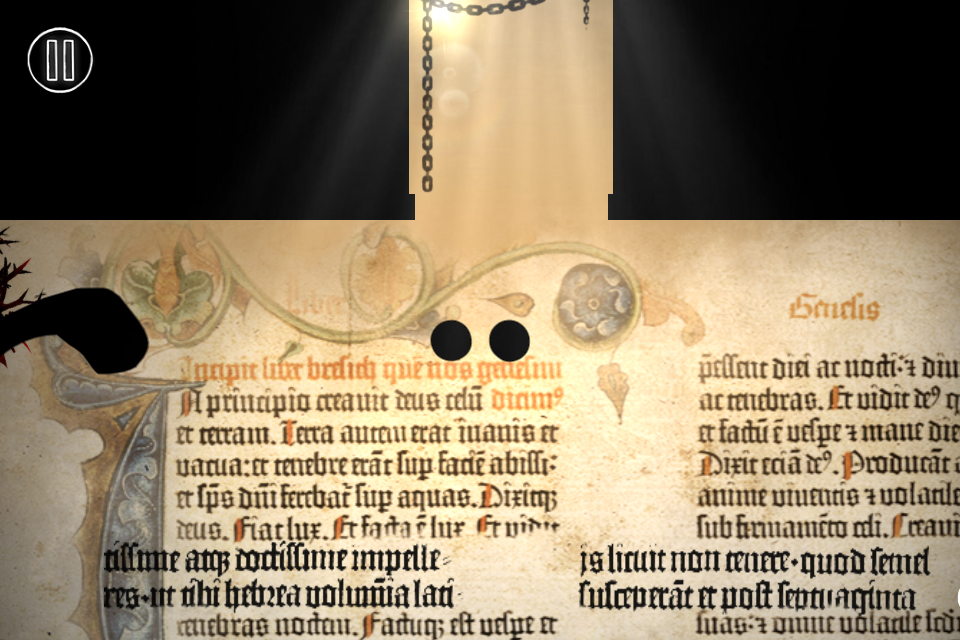 Incipit liber bresich quē nos genesim
A principio creauit deus celū dicim⁹
et terram. Terra autem erat inanis et
vacua: et tenebre erāt sup faciē abissi:
et sp̄s dn̄i ferebat̄ sup aquas. Dixitq̢
deus. Fiat lux. Et facta ē lux. Et vidit
tissime atq̢ doctissime impelle⸗
res·ut tibi hebrea volumīa lati
tenebras noctem. Factuq̢ est vespe et
Genesis
p̄essent diei ac nocti·⁊ diui
ac tenebras. Et vidit de⁹
et factū ē vespe ⁊ mane die
Dixit eciā de⁹. Producāt
anime viuentis ⁊ volatile
sub firmamēto celi. Creaui
is licuit non tenere·quod semel
susceperāt et post septuaginta
suas·⁊ omne volatile